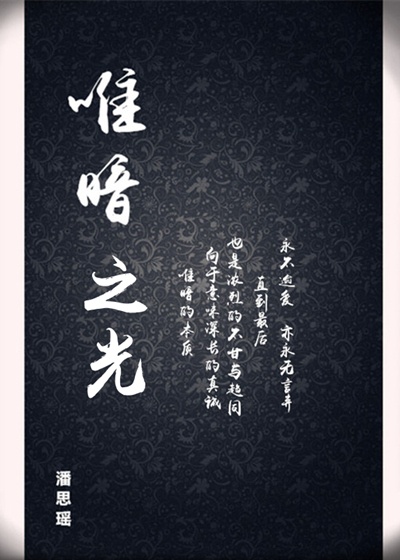 唯暗之光
永不逾爱 亦永无言弃
直到最后
也是浓烈的不甘与趋同
向于意味深长的真诚
唯暗的本质。
潘思瑶